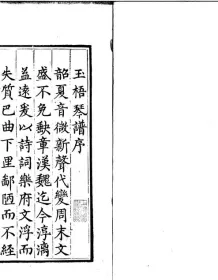 玉梧琴譜序
韶夏音微新聲代變周末文
盛不免缺章漢魏迄今淳漓
益遠爰以詩詞樂府文浮而
失質巴曲下里鄙陋而不經